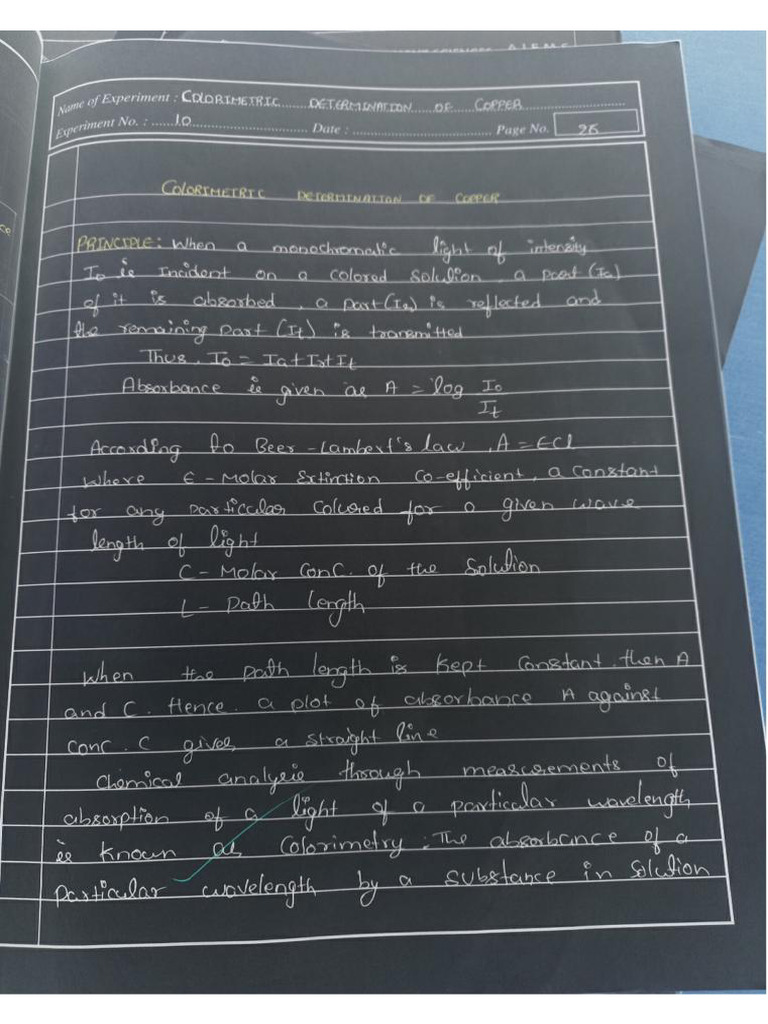 Name of Experiment : COLORIMETRIC DETERMINATION OF COPPER
Experiment No. : 10 Date : Page No. 26
COLORIMETRIC DETERMINATION OF COPPER
PRINCIPLE: When a monochromatic light of intensity
I0 is Incident on a colored solution, a part (Ia)
of it is absorbed, a part (Ir) is reflected and
the remaining part (It) is transmitted
Thus, I0 = Ia + Ir + It
Absorbance is given as A = log I0
It
According to Beer - Lambert's law, A = ECl
Where E - Molar Extinction Co-efficient, a constant
for any particular coloured for a given wave
length of light
C - Molar conc. of the Solution
L - Path length
When the path length is kept constant then A
and C. Hence a plot of absorbance A against
conc. C gives a straight line
Chemical analysis through measurements of
absorption of a light of a particular wavelength
is known as Colorimetry. The absorbance of a
particular wavelength by a substance in solution